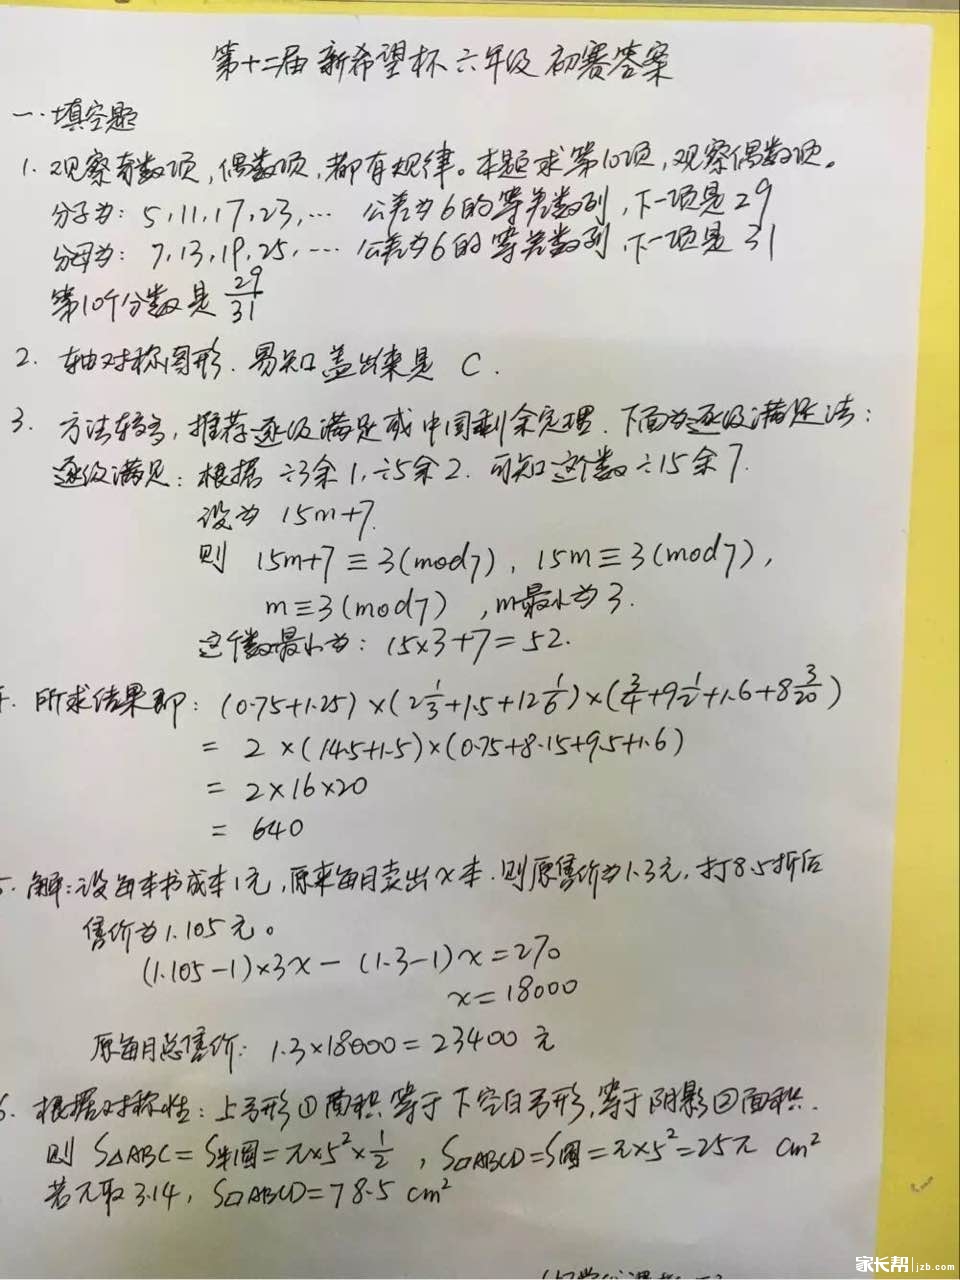 第十二届 新希望杯 六年级 初赛答案
一.填空题
1. 观察奇数项,偶数项,都有规律。本题求第10项,观察偶数项。
分子为: 5,11,17,23,… 公差为6的等差数列,下一项是29
分母为: 7,13,19,25,… 公差为6的等差数列,下一项是31
第10个分数是 29/31
2. 轴对称图形.易知盖出来是 C.
3. 方法较多,推荐逐级满足或中国剩余定理.下面为逐级满足法:
逐级满足: 根据 ÷3余1,÷5余2.可知这个数÷15余7.
设为 15m+7.
则 15m+7≡3(mod7), 15m≡3(mod7),
m≡3(mod7) ,m最小为3.
这个数最小为: 15×3+7=52.
所求结果即: (0.75+1.25)×(2 1/3+1.5+12 1/6)×(3/4+9 1/2+1.6+8 3/20)
= 2×(14.5+1.5)×(0.75+8.15+9.5+1.6)
= 2×16×20
= 640
解:设每本书成本1元,原来每月卖出x本.则原售价为1.3元,打8.5折后
售价为1.105元。
(1.105-1)×3x-(1.3-1)x=270
x=18000
原每月总售价: 1.3×18000=23400 元
6. 根据对称性:上弓形①面积等于下空白弓形,等于阴影②面积.
则 S△ABC=S半圆=π×5²×1/2 , S□ABCD=S圆=π×5²=25π cm²
若π取3.14, S□ABCD=78.5 cm²
家长帮 jzb.com